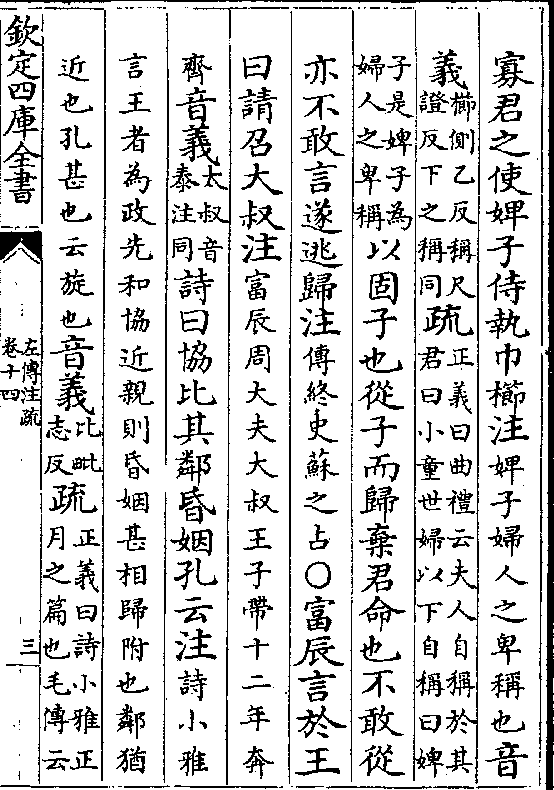 寡君之使婢子侍執巾櫛注婢子婦人之卑稱也音
義櫛側乙反稱尺證反下之稱同疏正義曰曲禮云夫人自稱於其君曰小童世婦以下自稱曰婢
子是婢子為婦人之卑稱以固子也從子而歸棄君命也不敢從
亦不敢言遂逃歸注傳終史蘇之占○富辰言於王
曰請召大叔注富辰周大夫大叔王子帶十二年奔
齊音義大叔音泰注同詩曰協比其鄰昏姻孔云注詩小雅
言王者為政先和協近親則昏姻甚相歸附也鄰猶
近也孔甚也云旋也音義比毗志反疏正義曰詩小雅正月之篇也毛傳云
欽定四庫全書
左傳注疏
卷十四
三